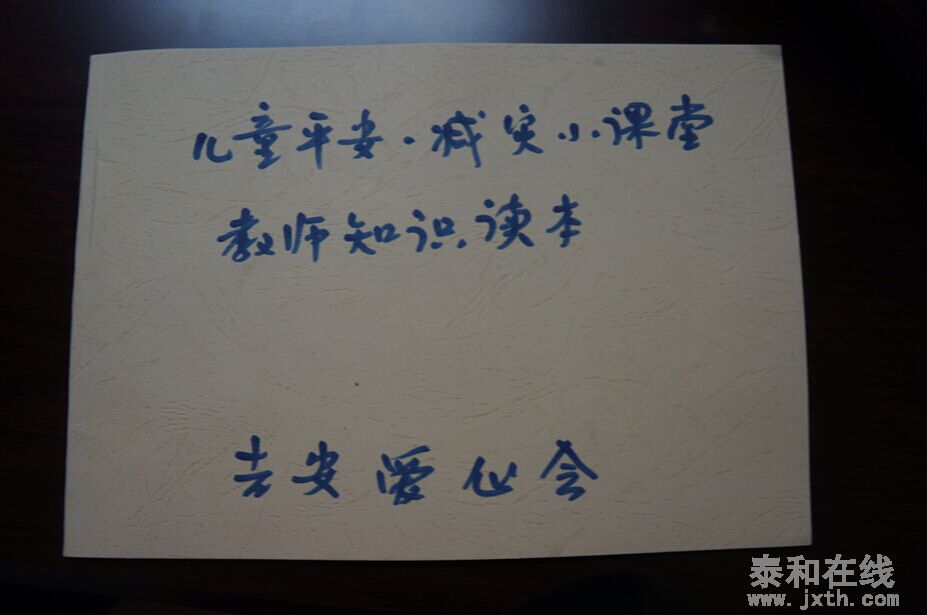 儿童平安·减灾小课堂
教师知识读本
吉安爱心会
泰和在线
www.jxth.com